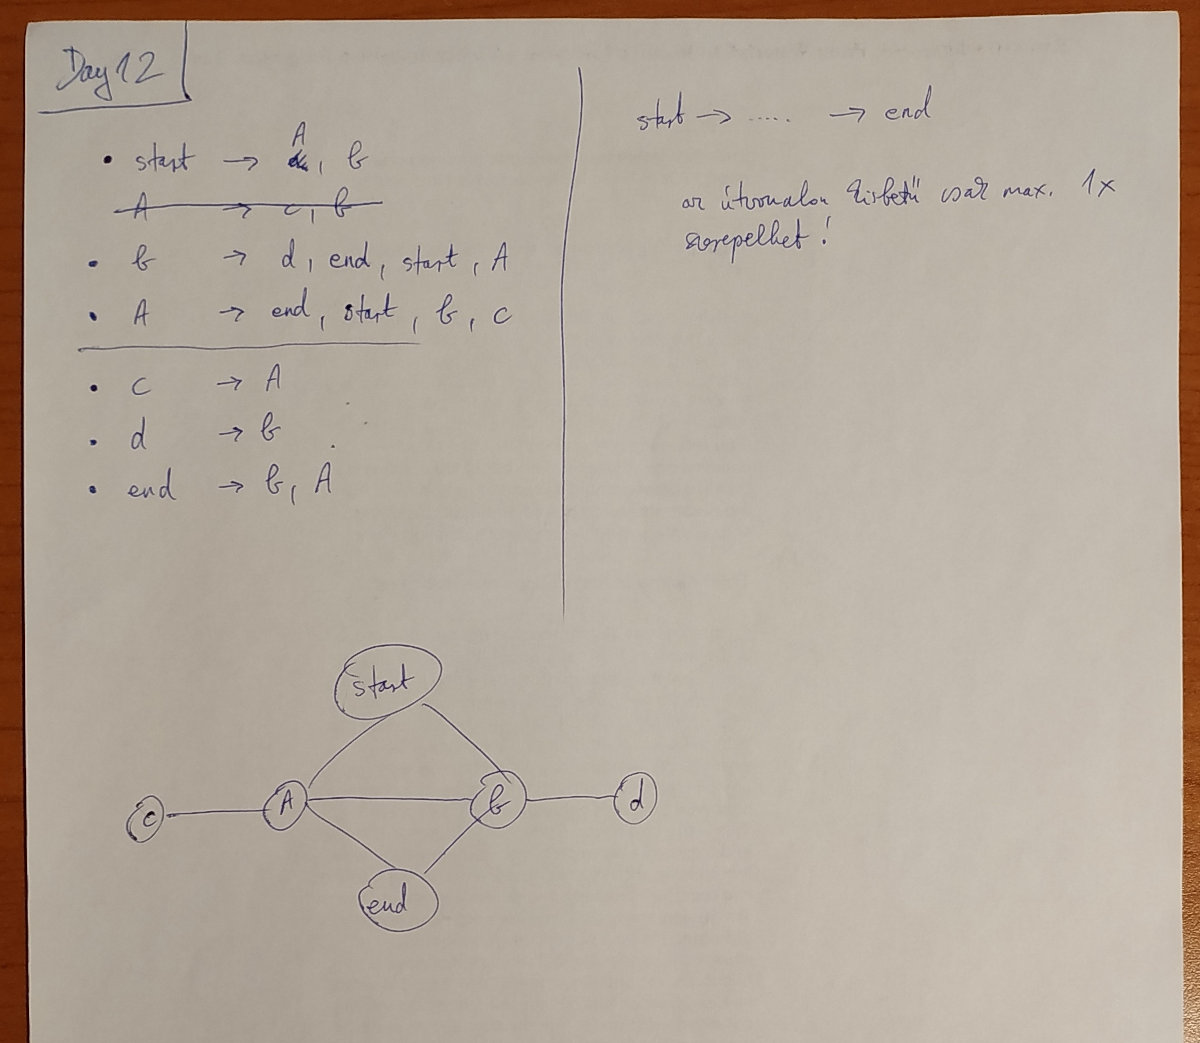 Day 12
A
• start → , b
A → c, b
• b → d, end, start, A
• A → end, start, b, c
• c → A
• d → b
• end → b, A
start → ..... → end
az útvonalon kisbetű csak max. 1x
szerepelhet!
start
c A b d
end